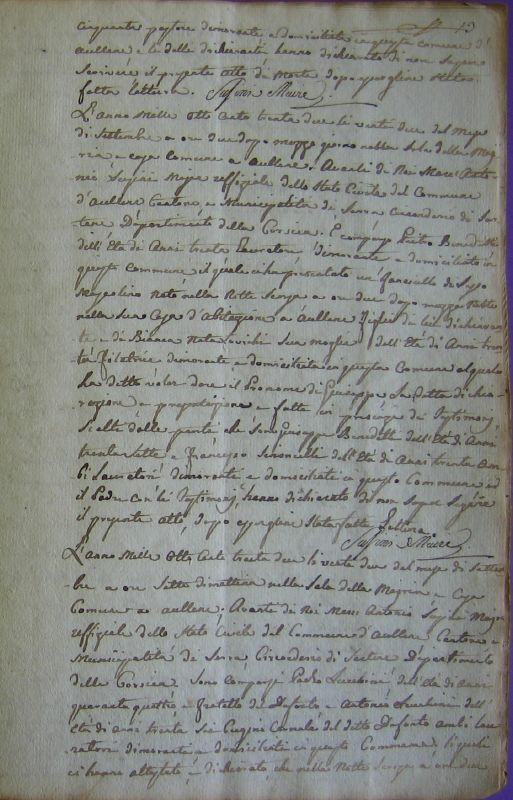 13
cinquanta pastore dimorante e domiciliato in questa comune d'
aullene e le delle dichiarante hanno dichiarato di non sapere
scrivere il presente atto di morte dopo essergliene stata
fatta lettura. Maire
L'anno Mille otto cento trenta due li venti due del Mese
di Settembre a ore due dopo mezzo giorno nella Sala della Mai
ria e casa Comune a aullene. Avanti di Noi Marc' Anto
nio Maire uffiziale dello Stato Civile del Commune
d'aullene Cantone e Municipalità di Serra Circondario di Sar
tene Dipartimento della Corsica. È comparso Pietro Benedetti
dell'Età di Anni trenta Lavoratore dimorante e domiciliato in
questa Commune il quale ci ha presentato un fanciullo di Sesso
Mascolino Nato nella Notte Scorsa a ore due dopo mezza Notte
nella sua Casa d'abitazione a aullene Figlio di lui dichiaran
te e di Bianca Maria sua moglie dell'Età di Anni tren
ta filatrice dimorante e domiciliata in questa Comune al quale
ha detto voler dare il Pronome di Giuseppe La detta dichia
razione e presentazione e fatta in presenza de Testimonj
dalle parte che Sono Giuseppe Benedetti dell'Età di Anni
trenta Sette e Francesco dell'Età di Anni trenta Am
bi Lavoratori dimoranti e domiciliati in questa Commune ed
il Padre con le Testimonj hanno dichiarato di non Saper Scrivere
il presente atto, dopo essergliene Stata fatta Lettura
Maire
L'anno Mille Otto Cento trenta due li venti due del mese di Settem
bre a ore Sette di mattina nella Sala della Mairia e Casa
Comune a aullene. Avante di Noi Marc' Antonio Maire
uffiziale dello Stato Civile del Commune d'aullene Cantone e
Municipalità di Serra, Circondario di Sartene Dipartimento
della Corsica. Sono Comparsi Pietro dell'Età di Anni
quaranta quattro, Fratello del Defonto e Antonio dell'
età di anni trenta Sei Cugino Carnale del detto Defonto ambi Lavo
ratori dimoranti e domiciliati in questa Commune. li quali
ci hanno attestato e dichiarato che nella Notte Scorsa a ore due